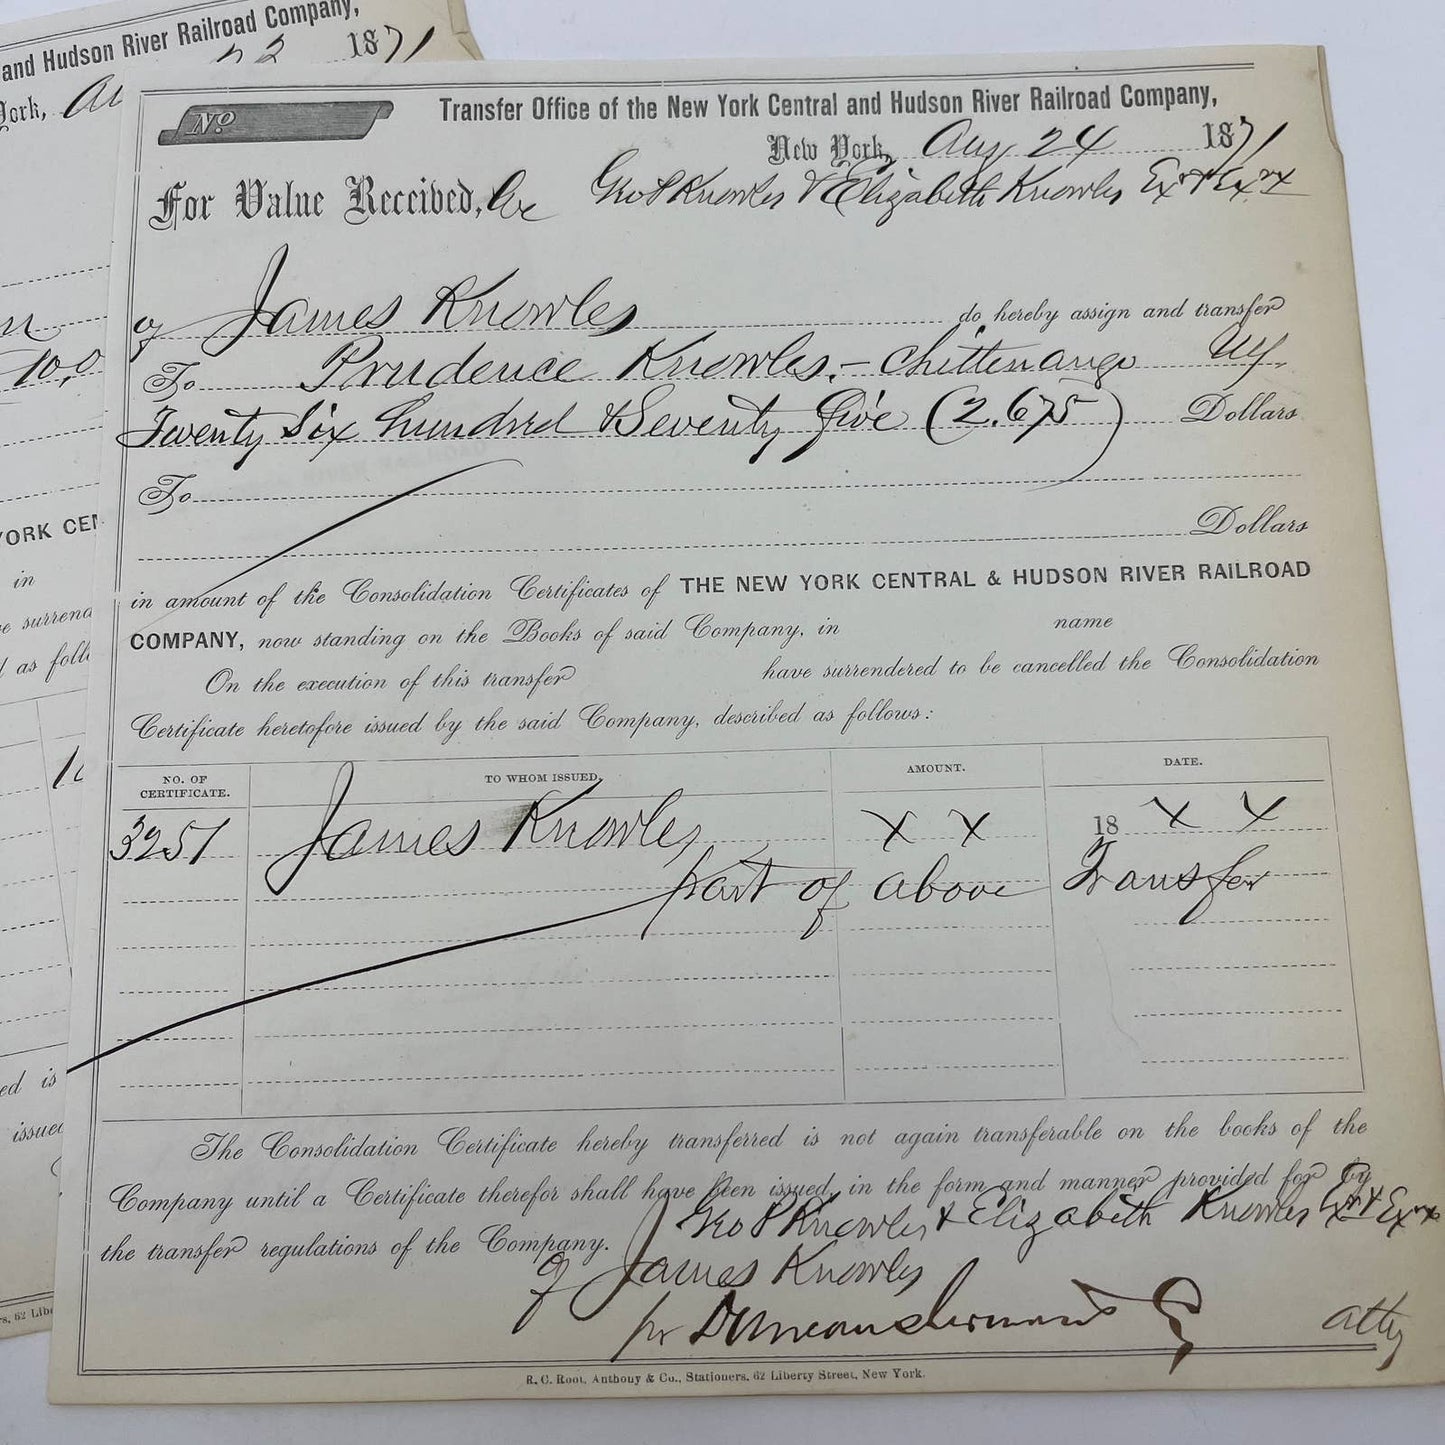 and Hudson River Railroad Company,
York, 22 1871
100
YORK CEN
in
surrend
as foll
ed is
issued
rs, 62 Lib
No
Transfer Office of the New York Central and Hudson River Railroad Company,
New York, Aug 24 1871
For Value Received, We Geo P Knowles & Elizabeth Knowles Exr & Exrx
of James Knowles do hereby assign and transfer
To Prudence Knowles - Chittenango NY
Twenty Six hundred & Seventy five (2.675) Dollars
To
Dollars
in amount of the Consolidation Certificates of THE NEW YORK CENTRAL & HUDSON RIVER RAILROAD
COMPANY, now standing on the Books of said Company, in name
On the execution of this transfer have surrendered to be cancelled the Consolidation
Certificate heretofore issued by the said Company, described as follows:
NO. OF CERTIFICATE. TO WHOM ISSUED. AMOUNT. DATE.
3251 James Knowles X X 18 X X
part of above Transfer
The Consolidation Certificate hereby transferred is not again transferable on the books of the
Company until a Certificate therefor shall have been issued, in the form and manner provided for by
the transfer regulations of the Company.
Geo P Knowles & Elizabeth Knowles Exr & Exrx
of James Knowles
pr Duncan Sherman & Co atty
R. C. Root, Anthony & Co., Stationers, 62 Liberty Street, New York.